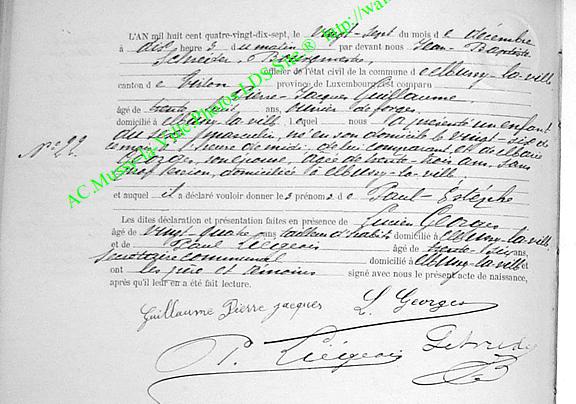 L'AN mil huit cent quatre-vingt-dix-sept, le vingt-sept du mois de décembre
à dix heures du matin par devant nous Jean-Baptiste
Schneider, Bourgmestre,
Officier de l'état civil de la commune de Mussy-la-ville
canton de Virton, province de Luxembourg est comparu
Pierre-Jacques Guillaume
âgé de trente ans, ouvrier de forges
domicilié à Mussy-la-ville, lequel nous a présenté un enfant
du sexe masculin, né en son domicile le vingt-six de
ce mois, heure de midi, de lui comparant, et de Marie
Georges, son épouse, âgée de trente-trois ans, sans
profession, domiciliée à Mussy-la-ville
N° 22.
et auquel il a déclaré vouloir donner les prénoms de Paul-
Les dites déclaration et présentation faites en présence de Lucien Georges
âgé de vingt-quatre ans tailleur d'habits domicilié à Mussy-la-ville
et de Paul Liégeois âgé de trente ans,
secrétaire communal domicilié à Mussy-la-ville et
ont les père et témoins signé avec nous le présent acte de naissance,
après qu'il leur en a été fait lecture.
Guillaume Pierre Jacques L. Georges
P. Liégeois
AC.Mussy-la-Ville Photos LDS Site ® http://wa